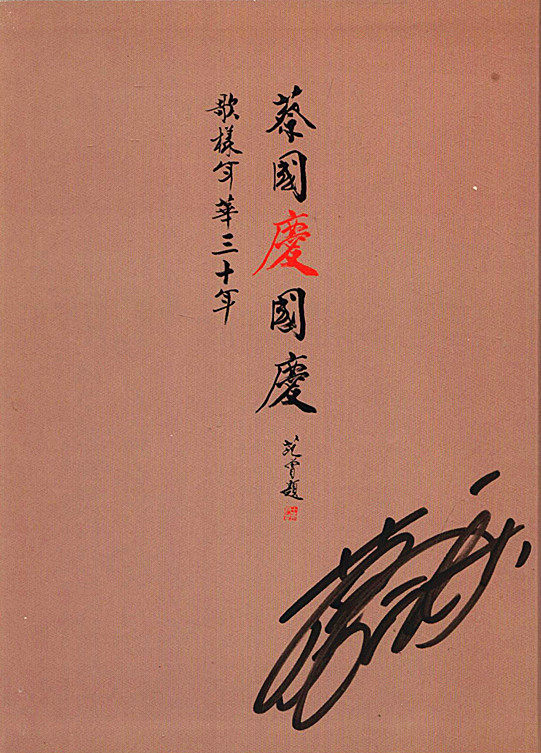 蔡國慶國慶
歌樣年華三十年
范曾題